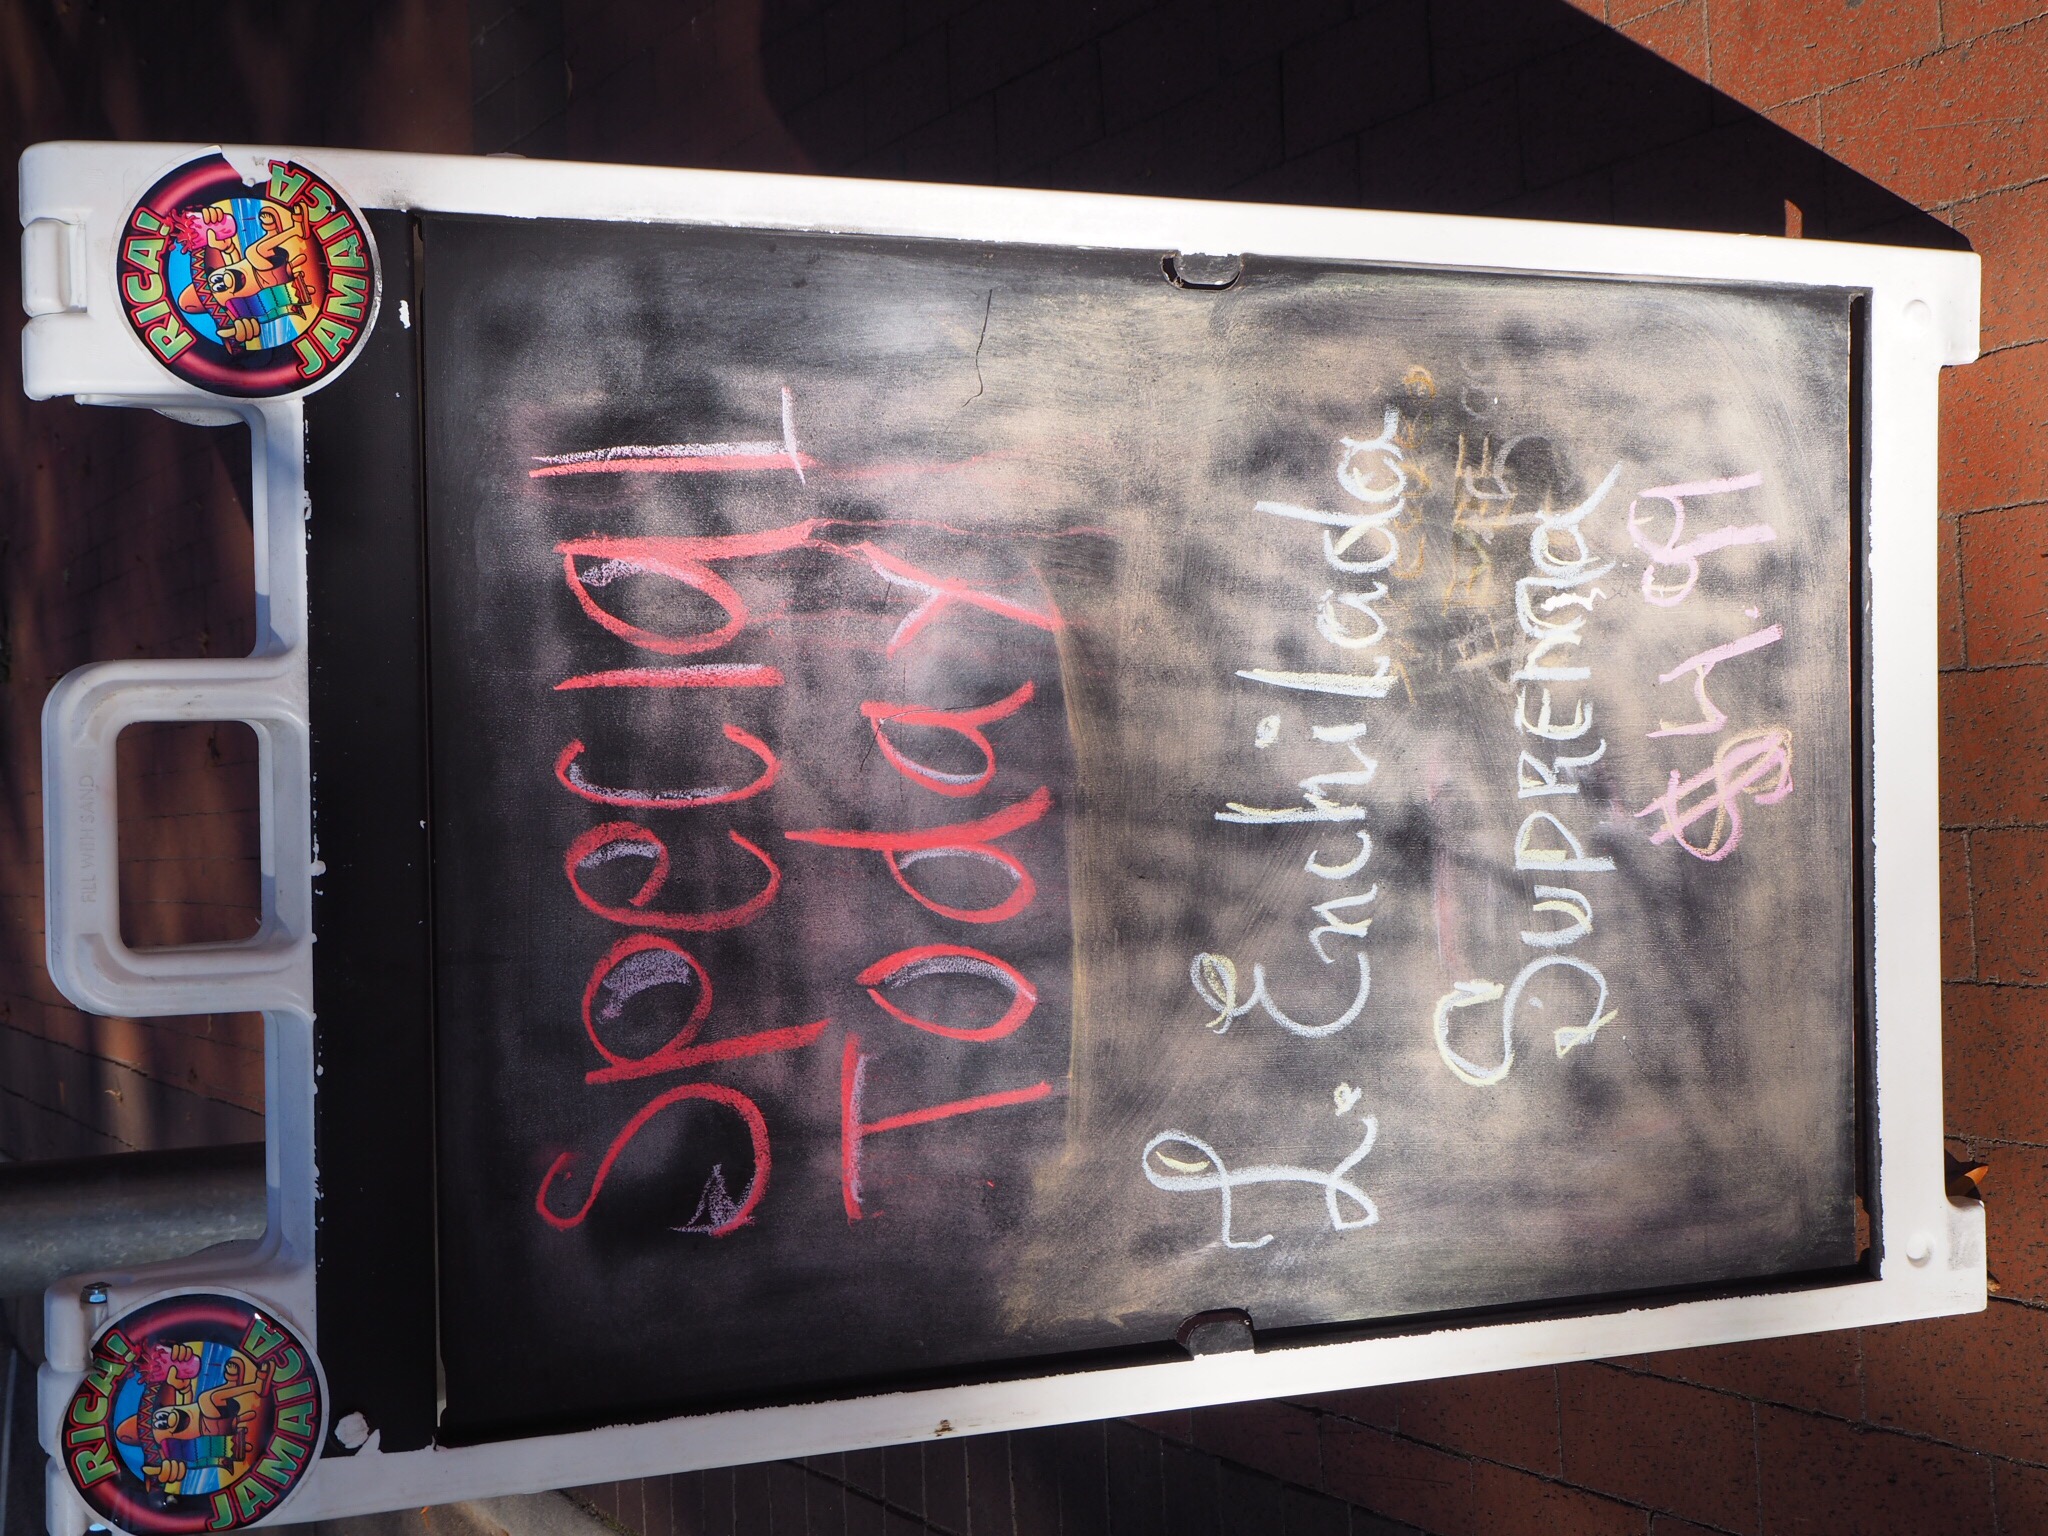 RICA!
JAMAICA
RICA!
JAMAICA
FILL WITH SAND
Special
Today
1. Enchilada
SUPREMA
$4.99